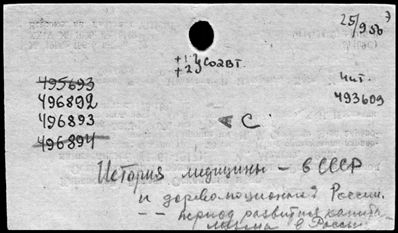 25/950
+1
+23 СО2ВТ.
495693
чит.
496892
493609
496893
С.
496894
История медицины – в СССР
и дореволюционная России.
– – период развития капита-
лизма в России